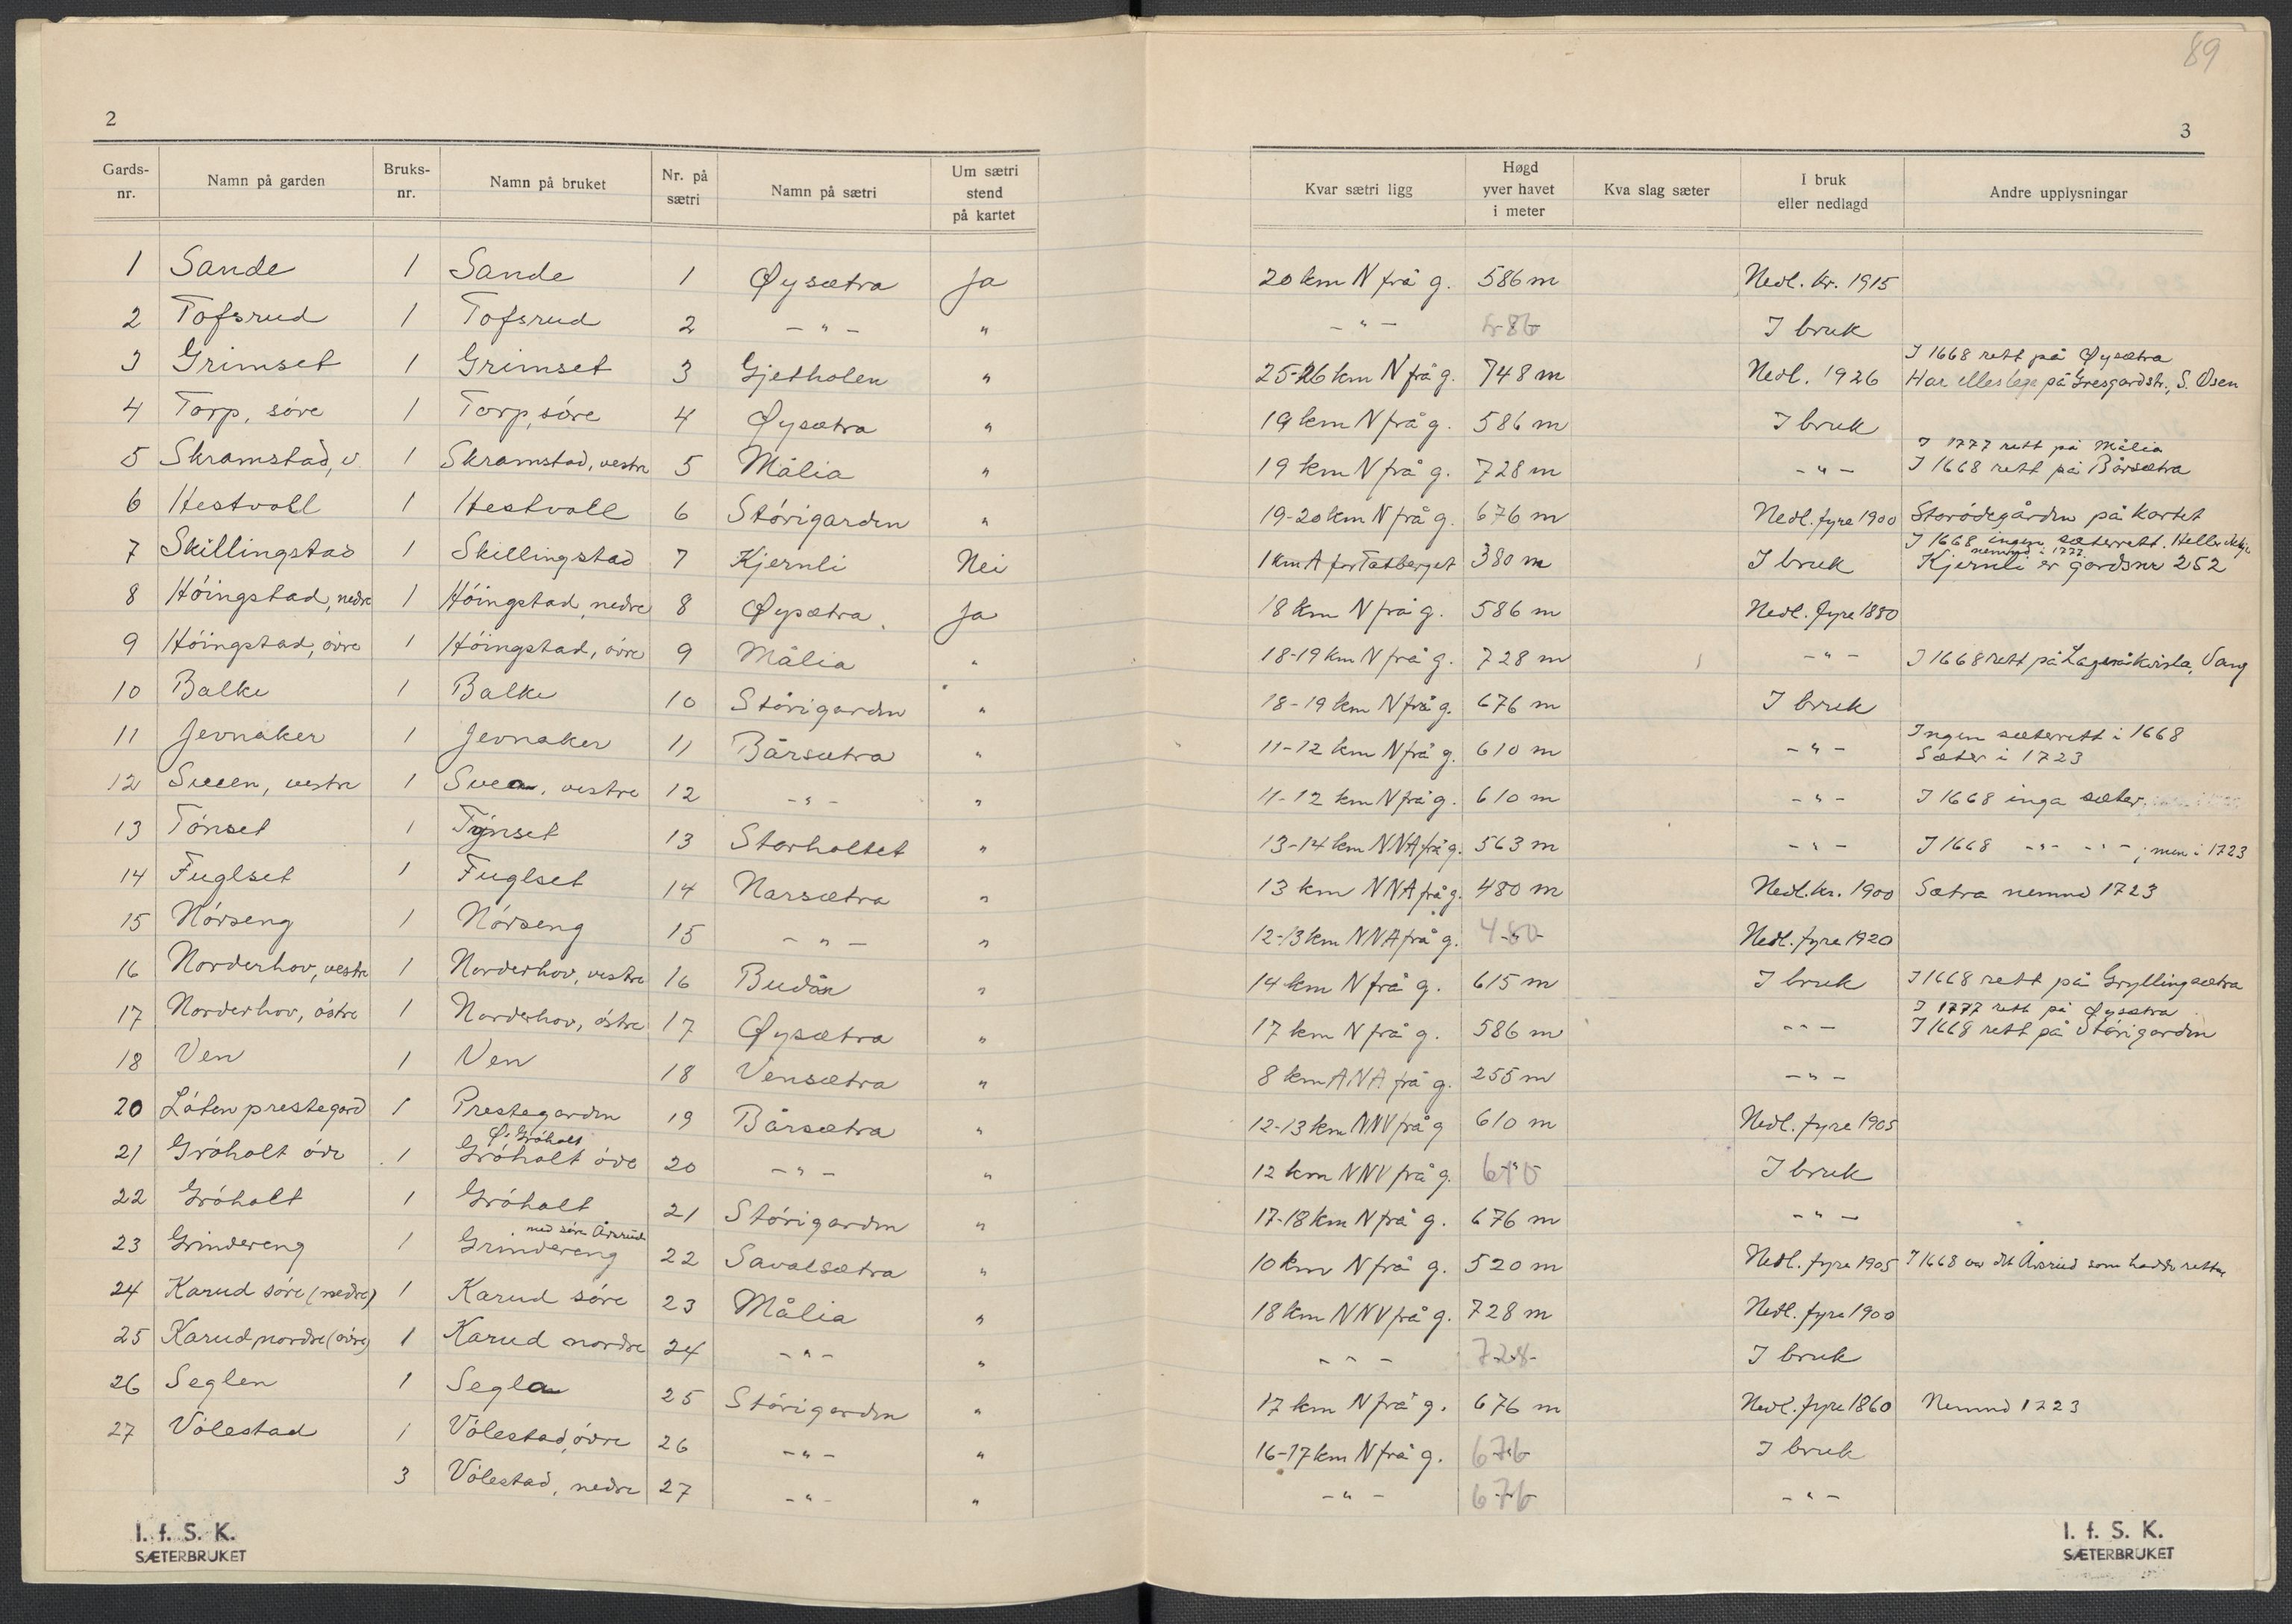 89
2
3
Gards-nr. Namn på garden Bruks-nr. Namn på bruket Nr. på sætri Namn på sætri Um sætri stend på kartet Kvar sætri ligg Høgd yver havet i meter Kva slag sæter I bruk eller nedlagd Andre upplysningar
1 Sande 1 Sande 1 Øysætra Ja 20 km N frå g. 586 m Nedl. kr. 1915
2 Tofsrud 1 Tofsrud 2 - " - " - " - 586 I bruk
I 1668 rett på Øysætra
3 Grimset 1 Grimset 3 Gjetholen " 25-26 km N frå g. 748 m Nedl. 1926 Har elles lege på Gresgardstr., S. Osen
4 Torp, søre 1 Torp, søre 4 Øysætra " 19 km N frå g. 586 m I bruk
I 1777 rett på Målia
5 Skramstad, v. 1 Skramstad, vestre 5 Målia " 19 km N frå g. 728 m - " - I 1668 rett på Bårsætra
6 Hestvoll 1 Hestvoll 6 Störigarden " 19-20 km N frå g. 676 m Nedl. fyre 1900 Storödegården på kartet
I 1668 ingen sæterrett. Heller ikkje
nemnd i 1777
7 Skillingstad 1 Skillingstad 7 Kjernli Nei 1 km A for Tatberget 380 m I bruk Kjernli er gardsnr 252
8 Höingstad, nedre 1 Höingstad, nedre 8 Øysætra Ja 18 km N frå g. 586 m Nedl. fyre 1880
9 Höingstad, övre 1 Höingstad, övre 9 Målia " 18-19 km N frå g. 728 m - " - I 1668 rett på Lagmåkvisla, Vang
10 Balke 1 Balke 10 Störigarden " 18-19 km N frå g. 676 m I bruk
Ingen sæterrett i 1668
11 Jevnaker 1 Jevnaker 11 Bårsætra " 11-12 km N frå g. 610 m - " - Sæter i 1723
12 Sveen, vestre 1 Svea, vestre 12 - " - " 11-12 km N frå g. 610 m - " - I 1668 inga sæter,
13 Tönset 1 Tönset 13 Storholtet " 13-14 km NNA frå g. 563 m - " - I 1668 - " - - " - ; men i 1723
14 Fuglset 1 Fuglset 14 Narsætra " 13 km NNA frå g. 480 m Nedl. kr. 1900 Sætra nemnd 1723
15 Nörseng 1 Nörseng 15 - " - " 12-13 km NNA frå g. 480 Nedl. fyre 1920
16 Norderhov, vestre 1 Norderhov, vestre 16 Budön " 14 km N frå g. 615 m I bruk I 1668 rett på Gryllingsætra
I 1777 rett på Øysætra
17 Norderhov, östre 1 Norderhov, östre 17 Øysætra " 17 km N frå g. 586 m - " - I 1668 rett på Störigarden
18 Ven 1 Ven 18 Vensætra " 8 km ANA frå g. 255 m - " -
20 Löten prestegard 1 Prestegarden 19 Bårsætra " 12-13 km NNV frå g 610 m Nedl. fyre 1905
Ø. Gröholt
21 Gröholt övre 1 Gröholt övre 20 - " - " 12 km NNV frå g. 610 I bruk
22 Gröholt 1 Gröholt 21 Störigarden " 17-18 km N frå g. 676 m - " -
med søre Årsrud
23 Grindereng 1 Grindereng 22 Savalsætra " 10 km N frå g. 520 m Nedl. fyre 1905 I 1668 var det Årsrud som hadde retten
24 Karud søre (nedre) 1 Karud søre 23 Målia " 18 km NNV frå g. 728 m Nedl. fyre 1900
25 Karud nordre (övre) 1 Karud nordre 24 - " - " - " - 728 I bruk
26 Seglen 1 Segla 25 Störigarden " 17 km N frå g. 676 m Nedl. fyre 1860 Nemnd 1723
27 Völestad 1 Völestad, övre 26 - " - " 16-17 km N frå g. 676 I bruk
3 Völestad, nedre 27 - " - " - " - 676 - " -
I. f. S. K.
SÆTERBRUKET
I. f. S. K.
SÆTERBRUKET